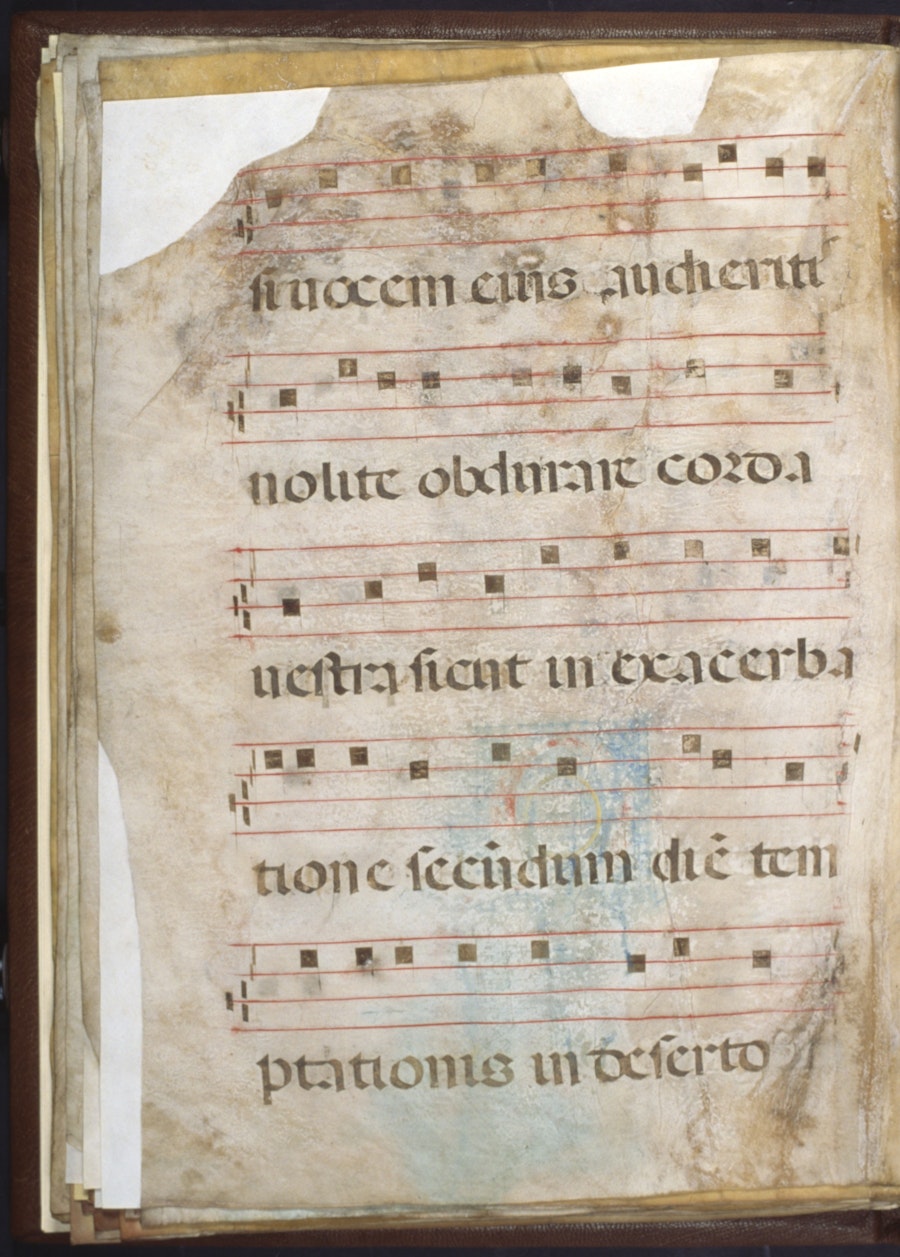 si uocem eius audieriti
nolite obdurare corda
uestra sicut in exacerba
tione secūdum diē tem
ptationis in deserto